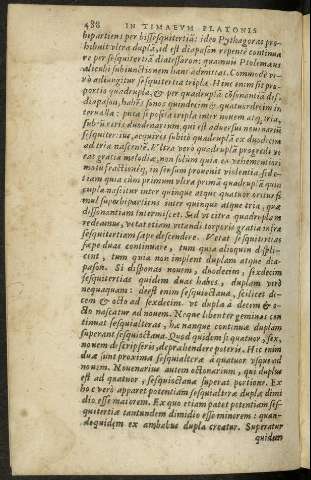 488 IN TIMAEVM PLATONIS
bipartiens per bissesquitertiā: ideo Pythagoras pro-
hibuit vltra duplā, id est diapason repente continua
re per sesquitertiā diatessaron: quamuis Ptolemæus
alicubi subiunctionem hanc admittat. Commodè ve-
rò adiungitur sesquitertia triplæ. Hinc enim fit pro-
portio quadrupla: & per quadruplā cōsonantia dis-
diapason, habēs sonos quindecim & quatuordecim in
terualla: puta si posita tripla inter nouem atq; tria,
sub
sesquitertius, acquiris subitò quadruplā ex duodecim
ad tria nascentē. Vltra verò quadruplā progredi ve
tat gratia melodiæ, non solum quia ea vehementiori
motu fractionéq; in sensu prouenit violentia, sed e-
tiam quia cùm primùm vltra primā quadruplā quin
tupla nascitur inter quinque atque quatuor oritur si
mul superbipartiens inter quinque atque tria, quæ
dissonantiam intermiscet. Sed vt citra quadruplam
redeamus, vetat etiam vitandi torporis gratia infra
sesquitertiam sæpe descendere. Vetat sesquitertias
sæpe duas continuare, tum quia alioquin displi-
cent, tum quia non implent duplam atque dia-
pason. Si disponas nouem, duodecim, sexdecim
sesquitertias quidem duas habes, duplam verò
nequaquam: deest enim sesquioctaua, scilicet de-
cem & octo ad sexdecim vt dupla à decem & o-
cto nascatur ad nouem. Neque libenter geminas con
tinuat sesquialteras, hæ nanque continuæ duplam
superant sesquioctaua. Quod quidem si quatuor, sex,
nouem descripseris, deprahendere poteris. Hic enim
duæ sunt proximæ sesquialteræ à quatuor vsque ad
nouem. Nouenarius autem octonarium, qui duplus
est ad quatuor, sesquioctaua superat portione. Ex
hoc verò apparet potentiam sesquialteræ duplæ dimi
dio esse maiorem. Ex quo etiam patet potentiam ses-
quitertiæ tantundem dimidio esse minorem: quan-
doquidem ex ambabus dupla creatur. Superatur
quidem